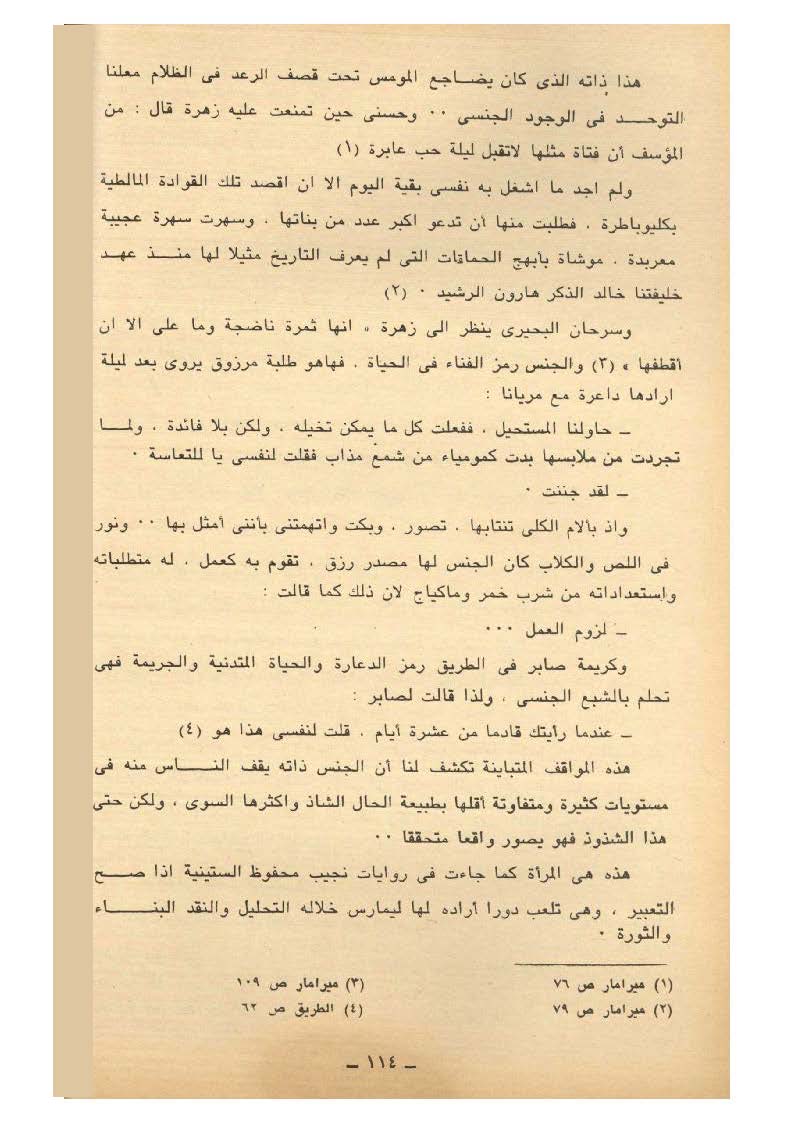 هذا ذاته الذى كان يضاجع المومس تحت قصف الرعد فى الظلام معلنا
التوحد فى الوجود الجنسى ٠٠ وحسنى حين تمنعت عليه زهرة قال : من
المؤسف أن فتاة مثلها لاتقبل ليلة حب عابرة (١)
ولم اجد ما اشغل به نفسى بقية اليوم الا ان اقصد تلك القوادة المالطية
بكليوباطرة ، فطلبت منها أن تدعو اكبر عدد من بناتها ، وسهرت سهرة عجيبة
معربدة ، موشاة بأبهج الحماقات التى لم يعرف التاريخ مثيلا لها منذ عهد
خليفتنا خالد الذكر هارون الرشيد ٠ (٢)
وسرحان البحيرى ينظر الى زهرة « انها ثمرة ناضجة وما على الا ان
أقطفها » (٣) والجنس رمز الفناء فى الحياة ، فهاهو طلبة مرزوق يروى بعد ليلة
ارادها داعرة مع مريانا :
ــ حاولنا المستحيل ، ففعلت كل ما يمكن تخيله ، ولكن بلا فائدة ، ولما
تجردت من ملابسها بدت كمومياء من شمع مذاب فقلت لنفسى يا للتعاسة ٠
ــ لقد جننت ٠
واذ بألام الكلى تنتابها ، تصور ، وبكت واتهمتنى بأننى أمثل بها ٠٠ ونور
فى اللص والكلاب كان الجنس لها مصدر رزق ، تقوم به كعمل ، له متطلباته
واستعداداته من شرب خمر وماكياج لان ذلك كما قالت :
ــ لزوم العمل ٠٠٠
وكريمة صابر فى الطريق رمز الدعارة والحياة المتدنية والجريمة فهى
تحلم بالشبع الجنسى ، ولذا قالت لصابر :
ــ عندما رأيتك قادما من عشرة أيام ، قلت لنفسى هذا هو (٤)
هذه المواقف المتباينة تكشف لنا أن الجنس ذاته يقف الناس منه فى
مستويات كثيرة ومتفاوتة أقلها بطبيعة الحال الشاذ واكثرها السوى ، ولكن حتى
هذا الشذوذ فهو يصور واقعا متحققا ٠٠
هذه هى المرأة كما جاءت فى روايات نجيب محفوظ الستينية اذا صح
التعبير ، وهى تلعب دورا أراده لها ليمارس خلاله التحليل والنقد البناء
والثورة ٠
(١) ميرامار ص ٧٦
(٢) ميرامار ص ٧٩
(٣) ميرامار ص ١٠٩
(٤) الطريق ص ٦٢
ــ ١١٤ ــ